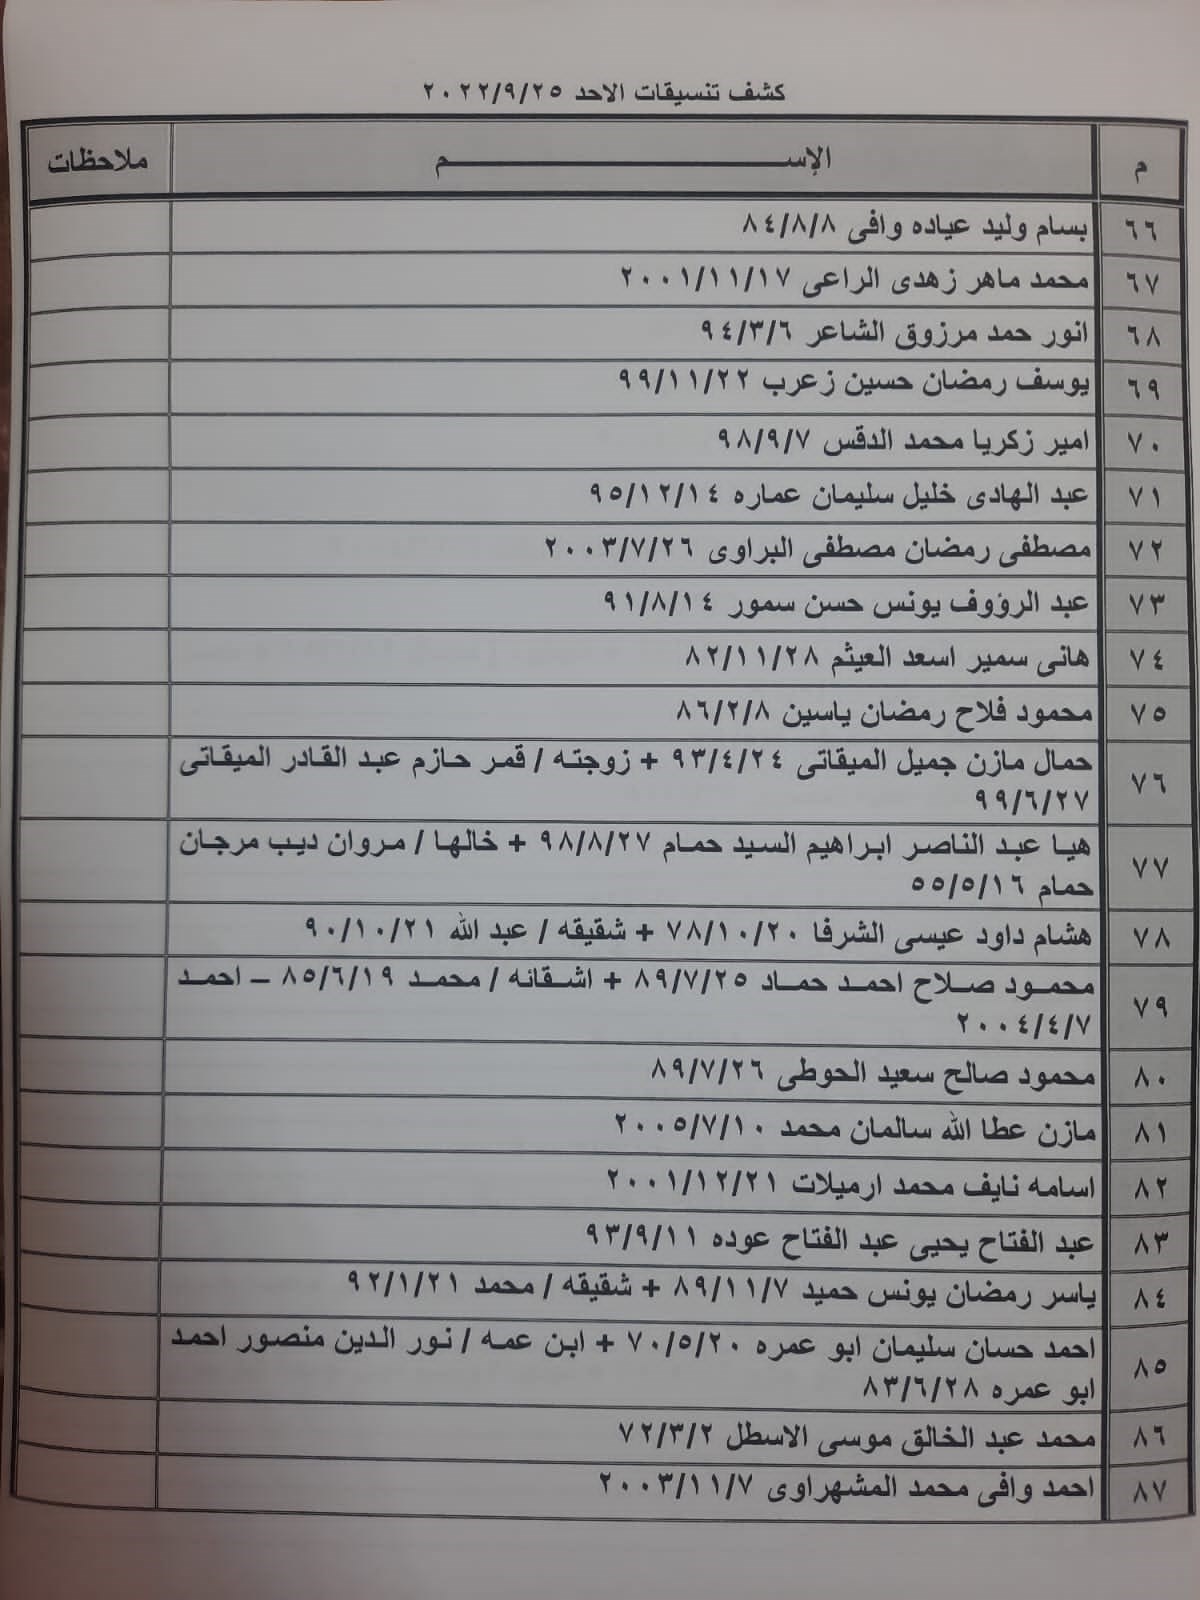 كشف تنسيقات الاحد ٢٠٢٢/٩/٢٥
م الإســـــــــــــم ملاحظات
٦٦ بسام وليد عياده وافى ٨٤/٨/٨
٦٧ محمد ماهر زهدى الراعى ٢٠٠١/١١/١٧
٦٨ انور حمد مرزوق الشاعر ٩٤/٣/٦
٦٩ يوسف رمضان حسين زعرب ٩٩/١١/٢٢
٧٠ امير زكريا محمد الدقس ٩٨/٩/٧
٧١ عبد الهادى خليل سليمان عماره ٩٥/١٢/١٤
٧٢ مصطفى رمضان مصطفى البراوى ٢٠٠٣/٧/٢٦
٧٣ عبد الرؤوف يونس حسن سمور ٩١/٨/١٤
٧٤ هانى سمير اسعد العيثم ٨٢/١١/٢٨
٧٥ محمود فلاح رمضان ياسين ٨٦/٢/٨
٧٦ حمال مازن جميل الميقاتى ٩٣/٤/٢٤ + زوجته / قمر حازم عبد القادر الميقاتى
٩٩/٦/٢٧
٧٧ هيا عبد الناصر ابراهيم السيد حمام ٩٨/٨/٢٧ + خالها / مروان ديب مرجان
حمام ٥٥/٥/١٦
٧٨ هشام داود عيسى الشرفا ٧٨/١٠/٢٠ + شقيقه / عبد الله ٩٠/١٠/٢١
٧٩ محمود صلاح احمد حماد ٨٩/٧/٢٥ + اشقائه / محمد ٨٥/٦/١٩ – احمد
٢٠٠٤/٤/٧
٨٠ محمود صالح سعيد الحوطى ٨٩/٧/٢٦
٨١ مازن عطا الله سالمان محمد ٢٠٠٥/٧/١٠
٨٢ اسامه نايف محمد ارميلات ٢٠٠١/١٢/٢١
٨٣ عبد الفتاح يحيى عبد الفتاح عوده ٩٣/٩/١١
٨٤ ياسر رمضان يونس حميد ٨٩/١١/٧ + شقيقه / محمد ٩٢/١/٢١
٨٥ احمد حسان سليمان ابو عمره ٧٠/٥/٢٠ + ابن عمه / نور الدين منصور احمد
ابو عمره ٨٣/٦/٢٨
٨٦ محمد عبد الخالق موسى الاسطل ٧٢/٣/٢
٨٧ احمد وافى محمد المشهراوى ٢٠٠٣/١١/٧